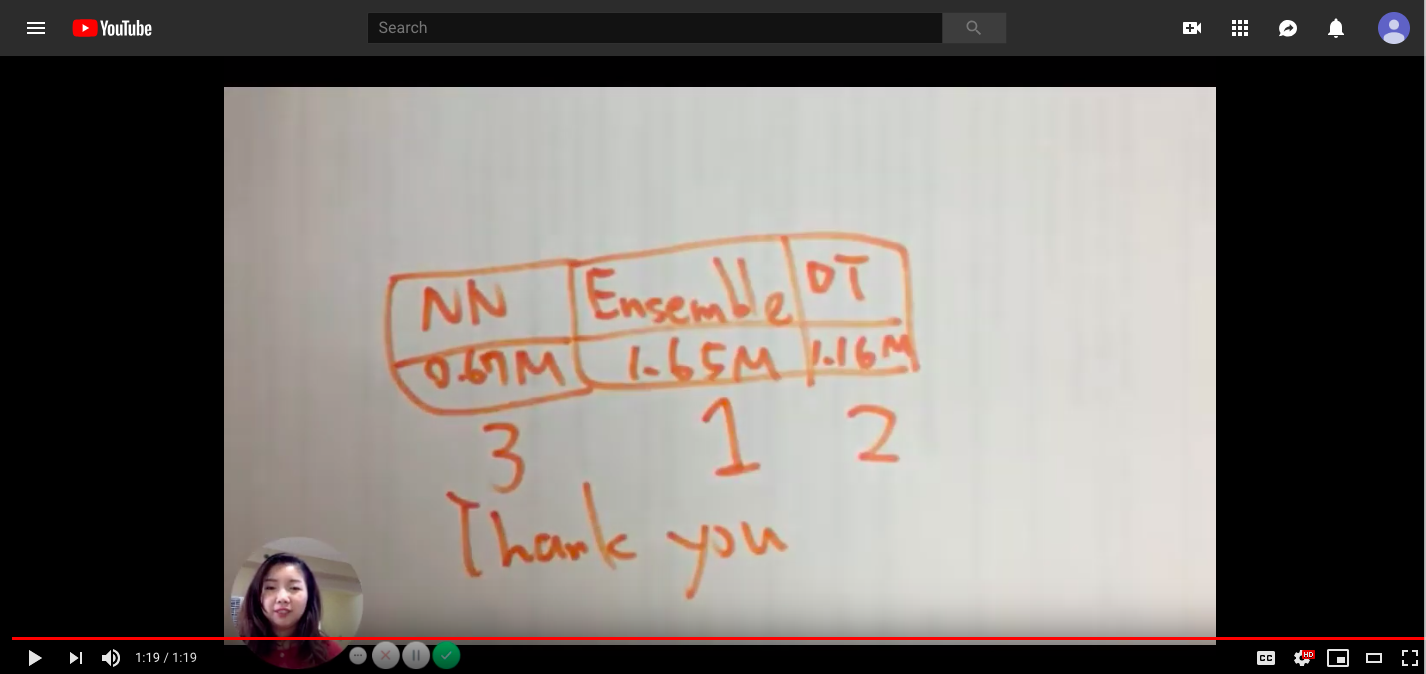 YouTube
Search
NN Ensemble DT
0.67M 1.65M 1.16M
3 1 2
Thank you
1:19 / 1:19
CC
HD